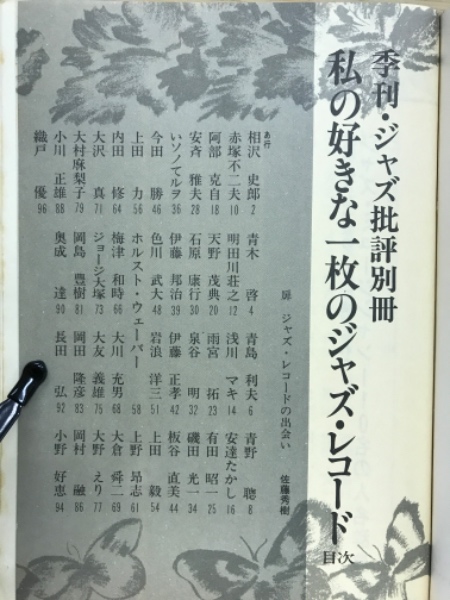 季刊・ジャズ批評別冊
私の好きな一枚のジャズ・レコード
目次
扉 ジャズ・レコードの出会い 佐藤秀樹
あ行
相沢 史郎 2 青木 啓 4 青島 利夫 6 青野 聰 8
赤塚不二夫 10 明田川荘之 12 浅川 マキ 14 安達たかし 16
阿部 克自 18 天野 茂典 20 雨宮 拓 23 有田 昭一 25
安斉 雅夫 28 石原 康行 30 泉谷 明 32 磯田 光一 34
いソノてルヲ 36 伊藤 邦治 39 伊藤 正孝 42 板谷 直美 44
今田 勝 46 色川 武大 48 岩浪 洋三 51 上田 毅 54
上田 力 56 ホルスト・ウェーバー 58 上野 昂志 61
内田 修 64 梅津 和時 66 大川 充男 68 大倉 舜二 69
大沢 真 71 ジョージ大塚 73 大友 義雄 75 大野 えり 77
大村麻梨子 79 岡島 豊樹 81 岡田 隆彦 83 岡村 融 86
小川 正雄 88 奥成 達 90 長田 弘 92 小野 好恵 94
織戸 優 96